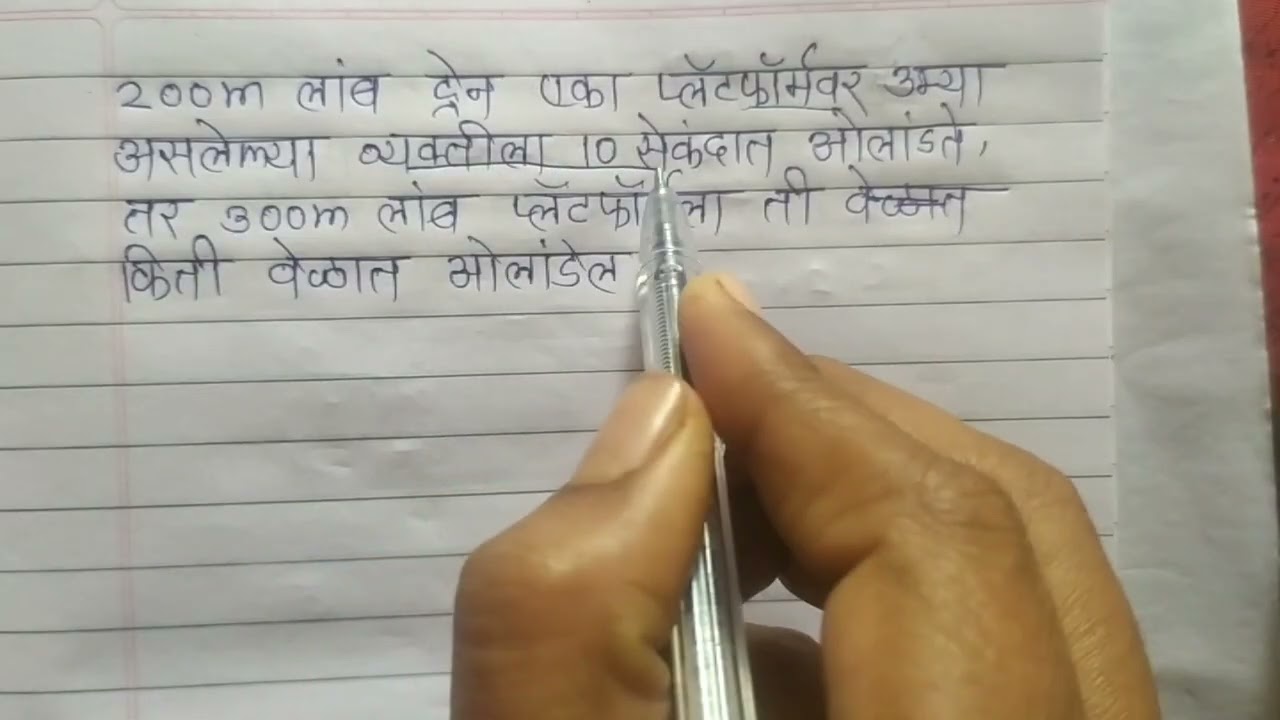 200m लांब ट्रेन एका प्लॅटफॉर्मवर उभ्या
असलेल्या व्यक्तीला 10 सेकंदात ओलांडते,
तर 300m लांब प्लॅटफॉर्मला ती
किती वेळात ओलांडेल